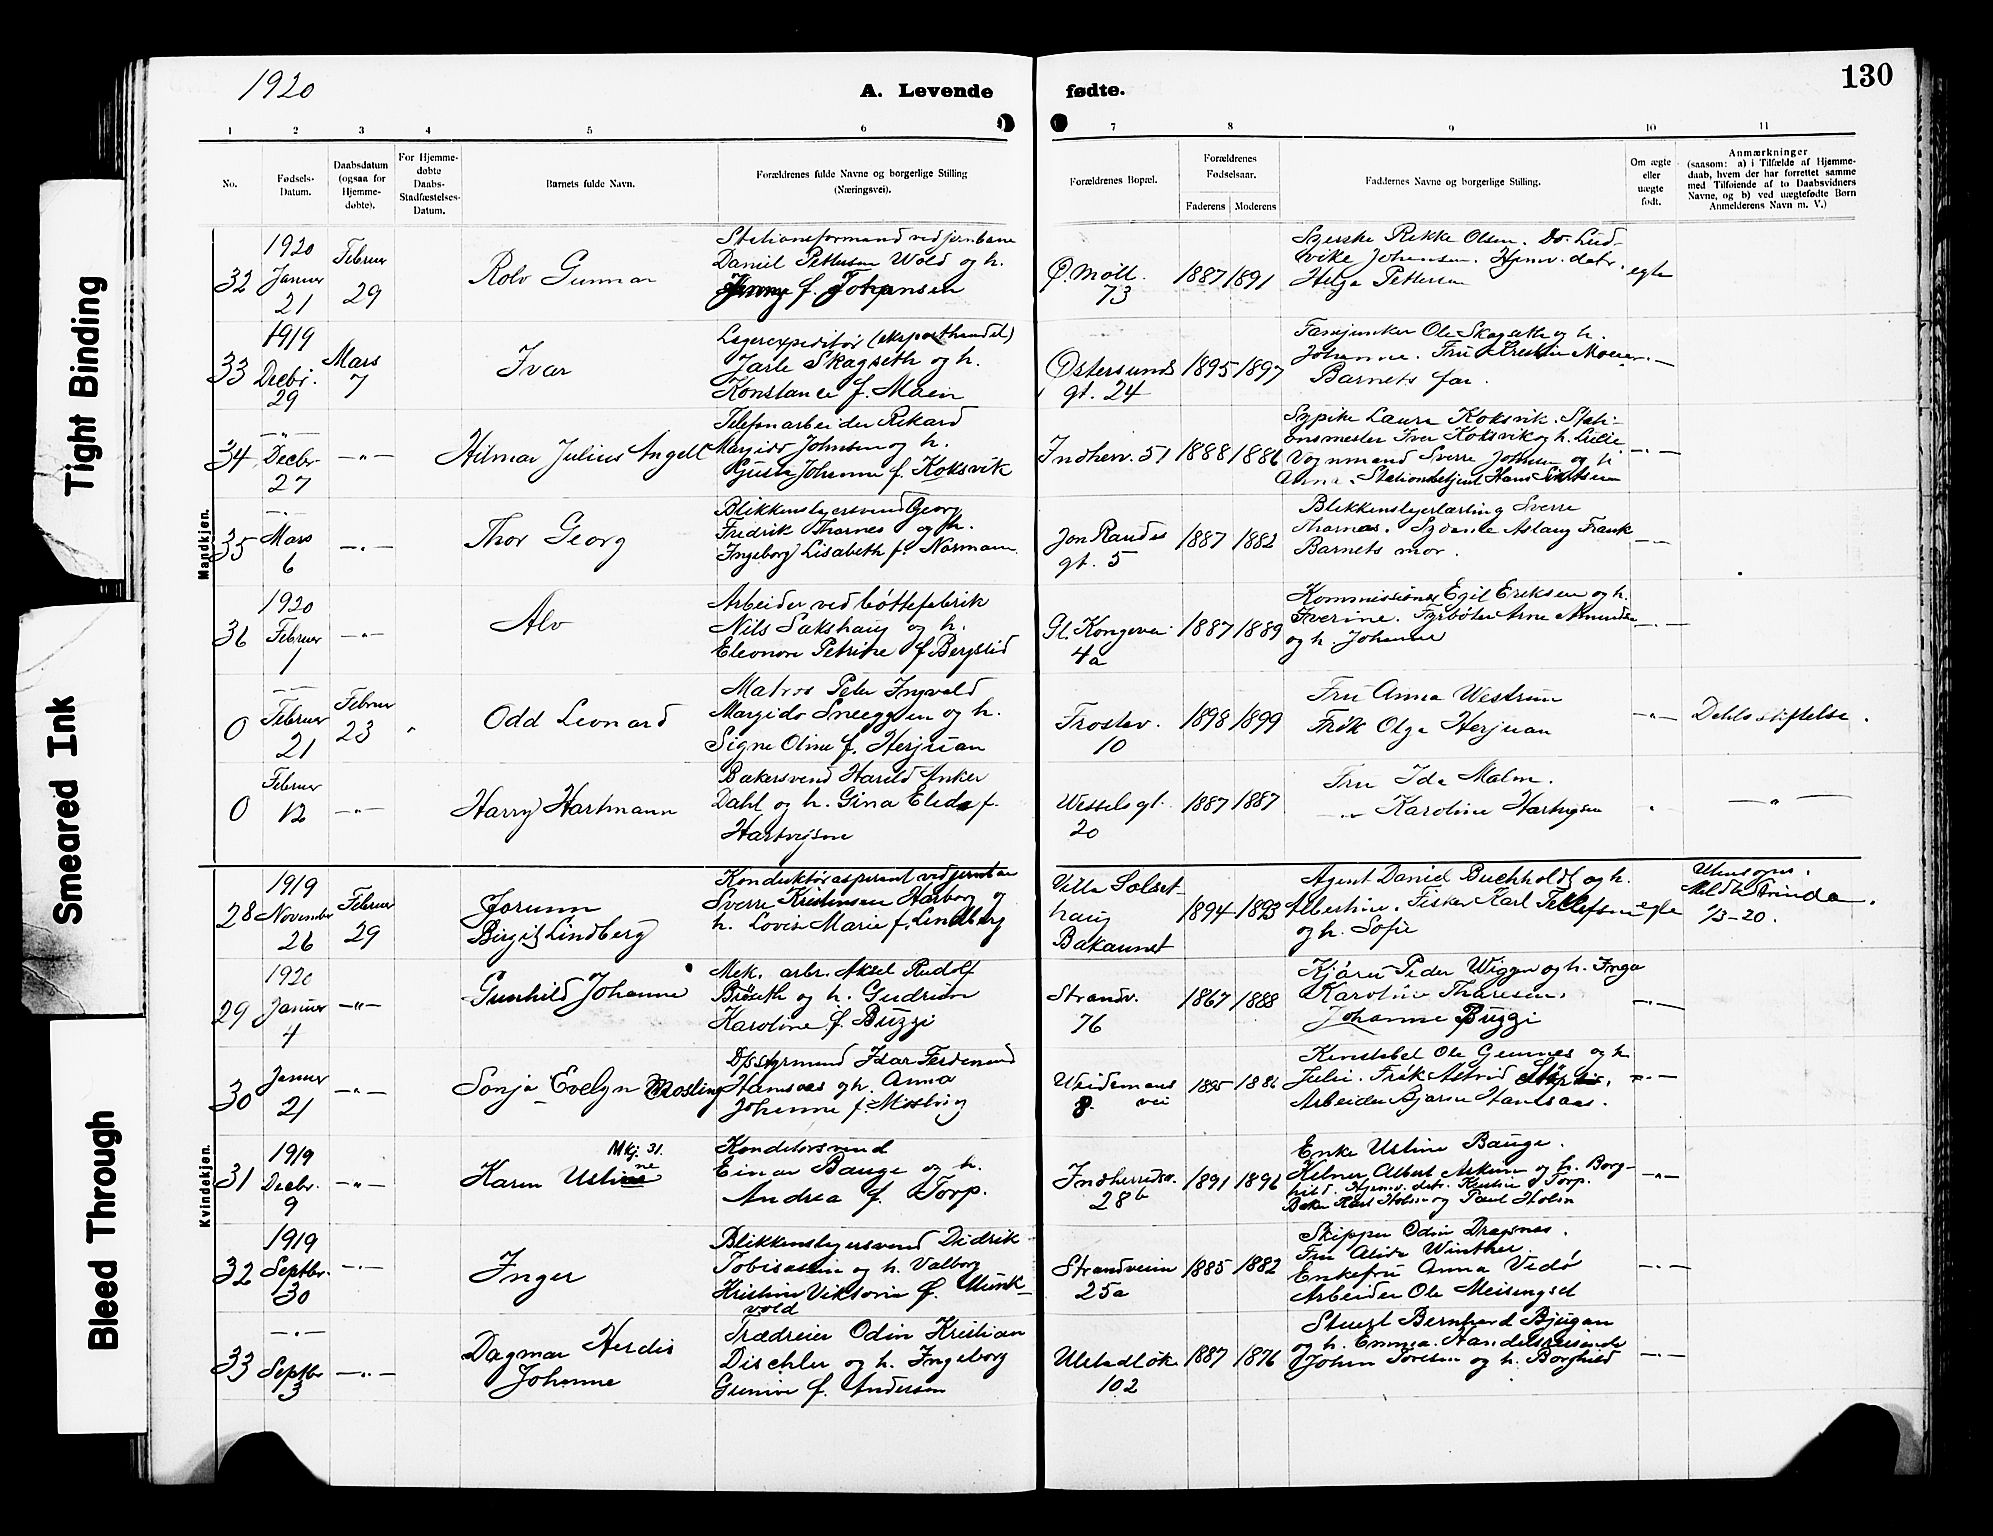 1920
A. Levende fødte.
130
Tight Binding
Smeared Ink
Bleed Through
1 2 3 4 5 6 7 8 9 10 11
No.
Fødsels-
Datum.
Daabsdatum
(ogsaa for
Hjemme-
døbte).
For Hjemme-
døbte
Daabs-
Stadfæstelses-
Datum.
Barnets fulde Navn.
Forældrenes fulde Navne og borgerlige Stilling
(Næringsvei).
Forældrenes Bopæl.
Forældrenes
Fødselsaar.
Faderens
Moderens
Faddernes Navne og borgerlige Stilling.
Om ægte
eller
uægte
født.
Anmærkninger
(saasom: a) i Tilfælde af Hjemme-
daab, hvem der har forrettet samme
med Tilføiende af to Daabsvidners
Navne, og b) ved uægtefødte Børn
Anmelderens Navn m. V.)
Mandkjøn.
32
1920
Januar
21
Februar
29
Rolv Gunnar
Stationsformand ved jernbane
Daniel Pettersen Wold og h.
Jenny f. Johansen
Ø. Møll.
73
1887
1891
Syerske Rikke Olsen. Do. Lud-
vike Johansen. Hjmv. datr.
Helga Pettersen
egte
33
1919
Decbr.
29
Mars
7
Ivar
Lagerexpeditør (eksporthandel)
Jarle Skagseth og h.
Konstance f. Moen
Østersunds
gt. 24
1895
1897
Fanejunker Ole Skagseth og h.
Johanne. Fru Kristin Moen
Barnets far.
-"-
34
-"-
Decbr.
27
-"-
Hilmar Julius Angell
Telefonarbeider Rikard
Margido Johnsen og h.
Gusta Johanne f. Koksvik
Indherv. 51
1888
1886
Sypike Laura Koksvik. Stati-
onsmester Iver Koksvik og h. Lilie
Vognmand Sverre Johnsen og h
Anna. Stationsbetjent Hans
-"-
35
-"-
Mars
6
-"-
Thor Georg
Blikkenslagersvend Georg
Fredrik Tharnes og h.
Ingeborg Lisabeth f. Normann
Jon Raudes
gt. 5
1887
1882
Blikkenslagerlærling Sverre
Tharnes. Sydame Aslaug Frank
Barnets mor.
-"-
36
1920
Februar
1
-"-
Alv
Arbeider ved bøttefabrik
Nils Sakshaug og h.
Eleonore Petrine f. Bergslid
Gl. Kongevei
4a
1887
1889
Kommissionær Egil Eriksen og h.
Iverine. Fyrbøter Arne Amundsen
og h. Johanne
-"-
0
-"-
Februar
21
Februar
23
"
Odd Leonard
Matros Peter Ingvald
Margido Sneeggen og h.
Signe Oline f. Herjuan
Frostav.
10
1898
1899
Fru Anna Westrum
Frøk Olga Herjuan
-"-
Dehls stiftelse.
0
Februar
12
-"-
Harry Hartmann
Bakersvend Harald Anker
Dahl og h. Gina Elida f.
Hartvigsen
Wessels gt.
20
1887
1887
Fru Ida Malm.
-"- Karoline Hartvigsen
"
-"-
Kvindekjøn.
28
1919
November
26
Februar
29
Jorunn
Birgit Lindberg
Konduktøraspirant ved jernbane
Sverre Kristensen Harborg og
h. Lovise Marie f. Lindberg
Villa Solset
haug
Bakaunet
1894
1893
Agent Daniel Buchholdt og h.
Albertine. Fisker Karl Tellefsen
og h. Sofie
egte
Utensogns.
Meldt Strinda.
1/3-20.
29
1920
Januar
4
-"-
Gunhild Johanne
Mek. arbr. Aksel Rudolf
Brøseth og h. Gudrun
Karoline f. Buzzi
Strandv.
76
1867
1888
Kjører Peder Wiggen og h. Inga
Karoline Tharesen.
Johanne Buzzi
-"-
30
Januar
21
-"-
Sonja Evelyn Mosling
Dpstyrmand Ivar Ferdinand
Hansaas og h. Anna
Johanne f. Mosling
Weidemans
8. vei
1895
1886
Konstabel Ole Gunnes og h
Julie. Frøk Astrid
Arbeider Bjarne Hansaas.
-"-
31
1919
Decbr.
9
-"-
Mkj. 31.
Karen Ustine
ne
Konditorsvend
Einar Bauge og h.
Andrea f. Torp.
Indherredsv.
28b
1891
1896
Enke Ustine Bauge.
Kelner Albert Askim og h. Borg-
hild. Hjemv. datr. Kristine Torp.
Baker Karl Holin og Paul Holin
-"-
32
1919
Septbr.
30
-"-
Inger
Blikkenslagersvend Didrik
Tobiassen og h. Valborg
Kristine Viktoria f. Munk-
vold
Strandveien
25a
1885
1882
Skipper Odin Dragsnes.
Fru Alida Winther.
Enkefru Anna Vidø
Arbeider Ole Meisingset
-"-
33
-"-
Septbr
3
-"-
Dagmar Herdis
Johanne
Trædreier Odin Kristian
Dischler og h. Ingeborg
Gunive f. Andersen
Ulstadløk.
102
1887
1876
Stuert Bernhard Bjugan
og h. Emma. Handelsreisende
Johan Toresen og h. Borghild
-"-